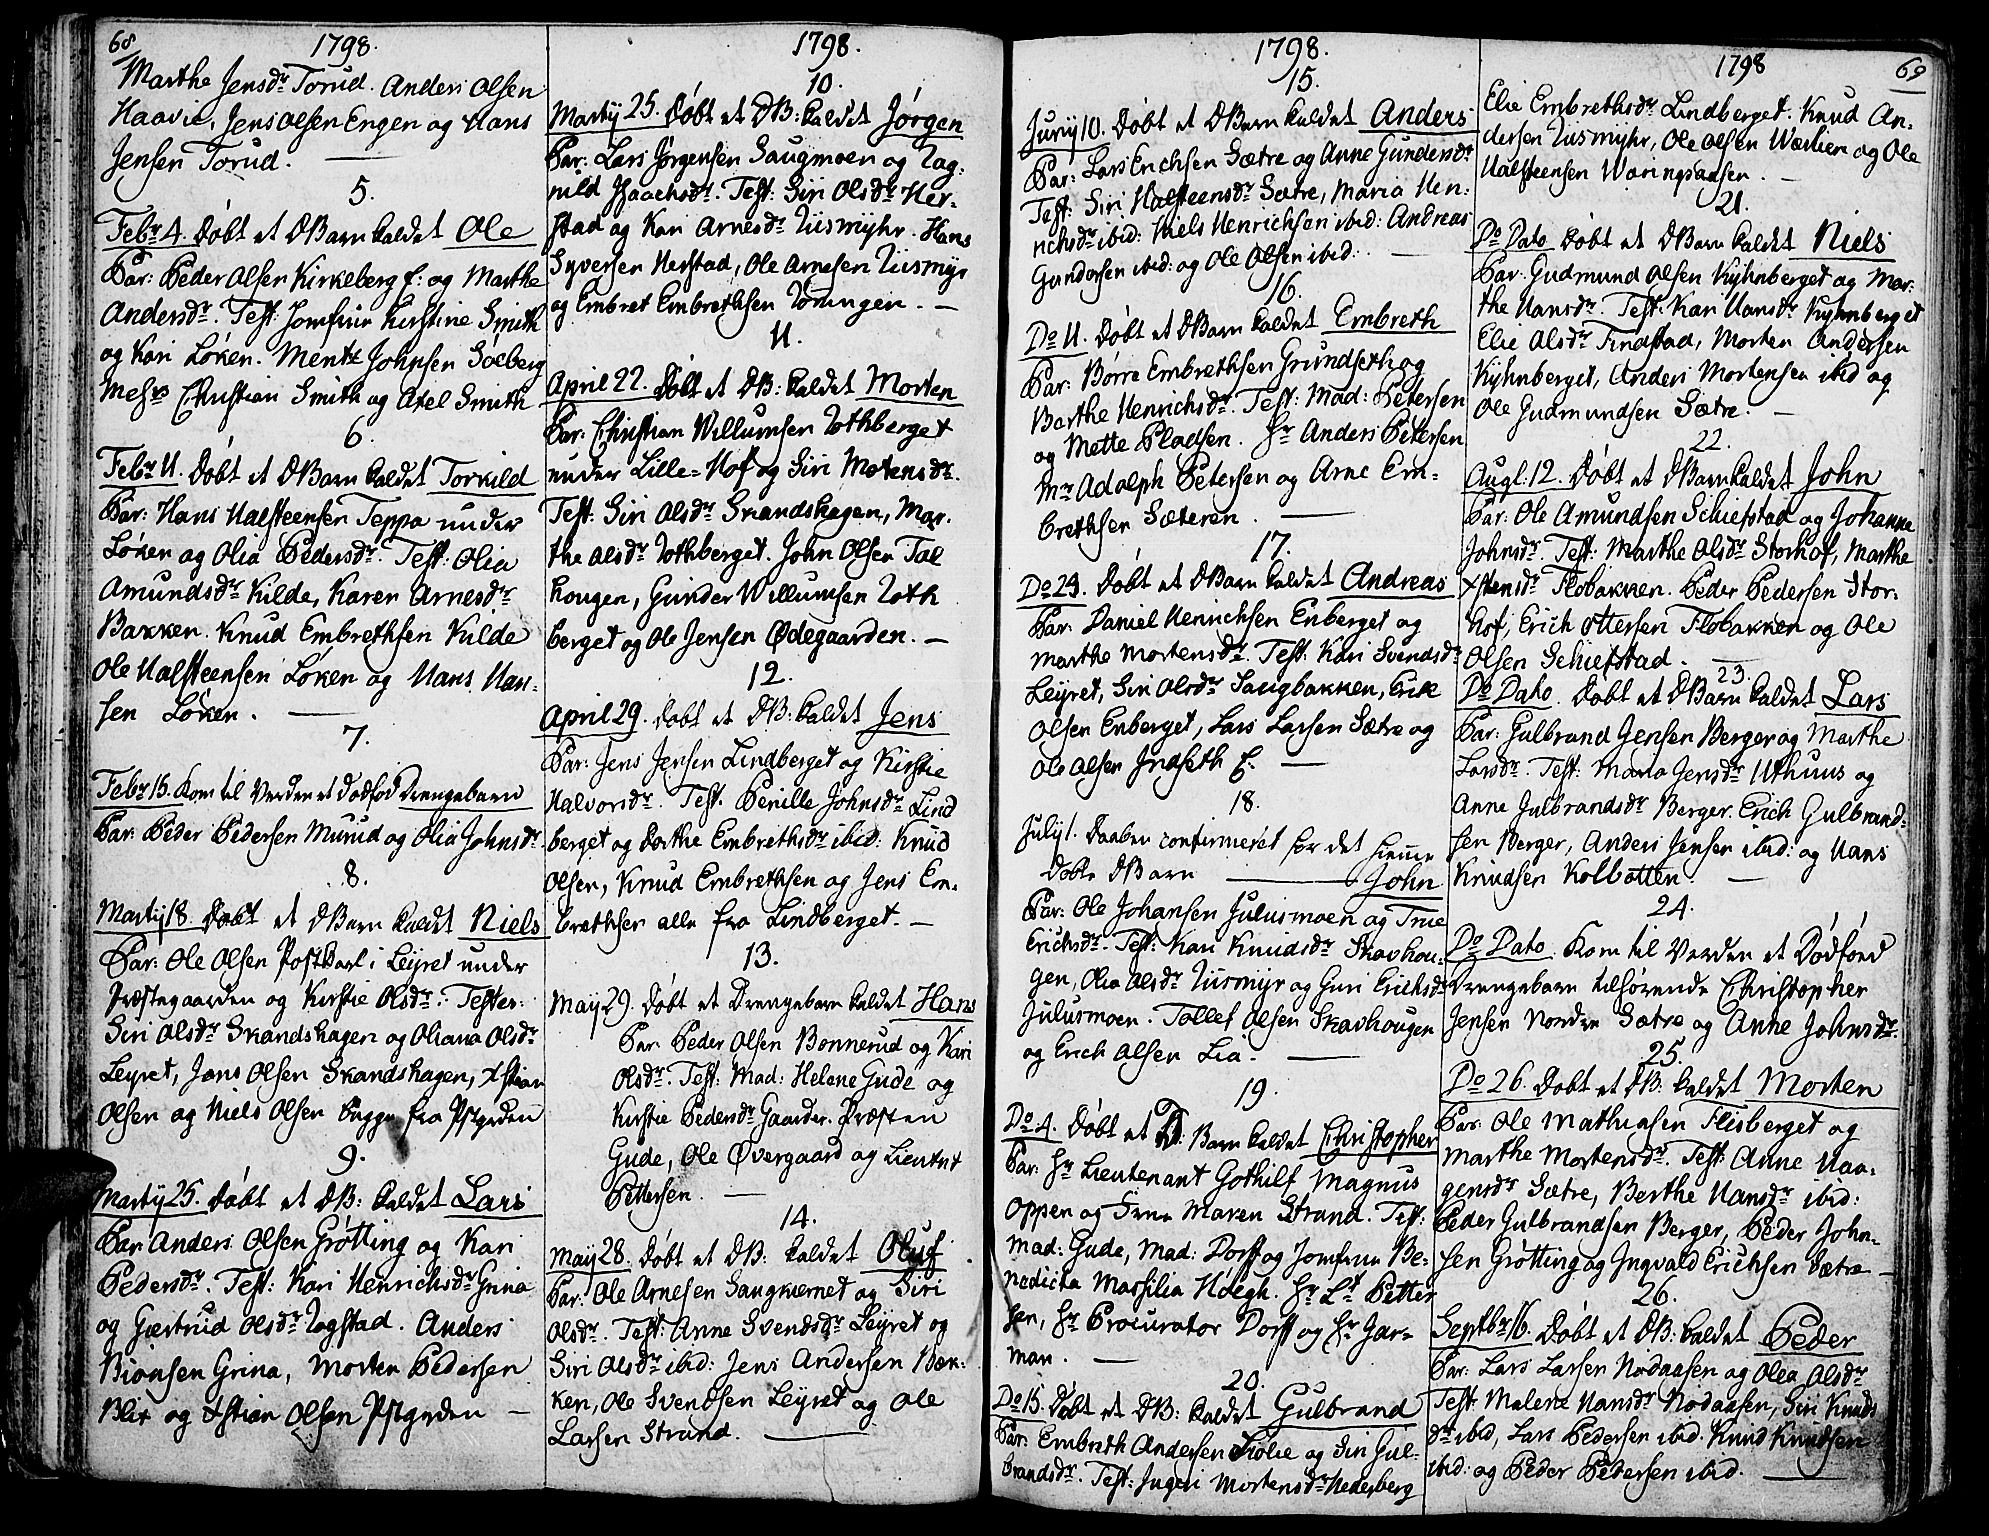 68
1798.
Marthe Jensdr Torud. Anders Olsen
Haavie, Jens Olsen Engen og Hans
Jensen Torud.
5.
Febr 4. Døbt et DBarn kaldet Ole
Par: Peder Olsen Kirkeberg E: og Marthe
Andersdr. Test: Jomfrue Kirstine Smith
og Kari Løken. Mentz Johnsen Solberg
Mesrs Christian Smith og Axel Smith
6.
Febr 11. Døbt et DBarn kaldet Torkild
Par: Hans Halsteensen Teppa under
Løken og Olia Pedersdr. Test: Olia
Amundsdr Kilde, Karen Arnesdr
Bakken. Knud Embrethsen Kilde
Ole Halsteensen Løken og Hans Han-
sen Løken.
7.
Febr 15. Kom til Verden et dødfød Drengebarn
Par: Peder Pedersen Murud og Olia Johnsdr.
8.
Martij 18. Døbt et DBarn kaldet Niels
Par: Ole Olsen Postkarl i Leyret under
Præstegaarden og Kirstie Olsdr. Testes:
Siri Olsdr Skandshagen og Oliana Olsdr
Leyret, Jens Olsen Skandshagen, Xstian
Olsen og Niels Olsen begge fra Pstgrden
9.
Martij 25. Døbt et DB: kaldet Lars
Par: Anders Olsen Grøtting og Kari
Pedersdr. Test: Kari Henrichsdr Grina
og Giertrud Olsdr Rogstad. Anders
Biønsen Grina, Morten Pedersen
Blix og Xstian Olsen Pstgrden
1798.
10.
Martij 25. Døbt et DB: kaldet Jørgen
Par: Lars Jørgensen Saugmoen og Rag-
nild Isaachsdr. Test: Siri Olsdr Her-
stad og Kari Arnesdr Riismyhr. Hans
Syversen Herstad, Ole Arnesen Riismyr
og Embret Embrethsen Røningen.
11.
April 22. Døbt et DB: kaldet Morten
Par: Christian Willumsen Rothberget
under Lille-Hof og Siri Motensdr.
Test: Siri Olsdr Skandshagen, Mar-
the Olsdr Rothberget. John Olsen Tal
hougen, Gunder Willumsen Roth
berget og Ole Jensen Ødegaarden.
12.
April 29. Døbt et DB: kaldet Jens
Par: Jens Jensen Lindberget og Kirstie
Halvorsdr. Test. Pernille Johnsdr Lind
berget og Dorthe Embrethsdr ibid: Knud
Olsen, Knud Embrethsen og Jens Em-
brethsen alle fra Lindberget.
13.
May 29. Døbt et Drengebarn kaldet Hans
Par: Peder Olsen Bonnerud og Kari
Olsdr. Test: Mad: Helene Gude og
Kirstie Pedersdr Gaarder. Præsten
Gude, Ole Øvergaard og Lieutnt
Pettersen.
14.
May 28. Døbt et DB: kaldet Oluf
Par: Ole Arnesen Saugkiernet og Siri
Olsdr. Test: Anne Svendsdr Leyret og
Siri Olsdr ibid: Jens Andersen Bæk-
ken, Ole Svendsen Leyret og Ole
Larsen Strand.
1798.
15.
Junij 10. Døbt et DBarn kaldet Anders
Par: Lars Erichsen Sætre og Anne Gundersdr
Test: Siri Halsteensdr Sætre, Maria Hen-
richsdr ibid: Niels Henrichsen ibid: Andreas
Gundersen ibid: og Ole Olsen ibid:
16.
Do 11. Døbt et DBarn kaldet Embreth
Par: Børre Embrethsen Grundseth og
Barthe Henrichsdr. Test: Mad: Petersen
og Mette Pladsen. Hr Anders Petersen
Mr Adolph Petersen og Arne Em-
brethsen Sæteren.
17.
Do 29. Døbt et DBarn kaldet Andreas
Par: Daniel Henrichsen Enberget og
Marthe Mortensdr. Test: Kari Svendsdr
Leyret, Siri Olsdr Saugbakken, Erik
Olsen Enberget, Lars Larsen Sætre og
Ole Olsen Indseth E.
18.
July 1. Daaben confirmeret for det hieme
døbte DBarn John
Par: Ole Johansen Julusmoen og True
Erichsdr. Test: Kari Knudsdr Skavhou-
gen, Olia Olsdr Riismyr og Guri Erichsdr
Julusmoen. Tollef Olsen Skavhougen
og Erich Olsen Lia.
19.
Do 4. Døbt et D: Barn kaldet Christopher
Par: Hr Lieutenant Gothilf Magnus
Oppen og Frue Maren Strand. Test:
Mad: Gude, Mad: Dorff og Jomfrue Be-
nedicta Marsilia Høegh. Hr Lt Petter
sen, Hr Procurator Dorff og Hr Gar-
man.
20.
Do 15. Døbt et DB: kaldet Gulbrand
Par: Embreth Andersen Kiølie og Siri Gul-
brandsdr. Test: Ingeri Mortensdr Hederberg
1798
69
Elie Embrethsdr Lindberget. Knud An-
dersen Riismyhr, Ole Olsen Wæslien og Ole
Halsteensen Waringsaasen.
21.
Do Dato Døbt et DBarn kaldet Niels
Par: Gudmund Olsen Kyhnberget og Mar-
the Hansdr. Test: Kari Hansdr Kyhnberget
Elie Olsdr Findstad, Morten Andersen
Kyhnberget, Anders Mortensen ibid og
Ole Gudmundsen Sætre.
22.
Augl: 12. Døbt et DBarn kaldet John
Par: Ole Amundsen Schiefstad og Johanne
Johnsdr. Test: Marthe Olsdr Storhof, Marthe
Xstensdr Flobakken. Peder Pedersen Stor-
hof, Erich Ottersen Flobakken og Ole
Olsen Schiefstad.
23.
Do Dato. Døbt et DBarn kaldet Lars
Par: Gulbrand Jensen Berger og Marthe
Larsdr. Test: Maria Jensdr Uthuus og
Anne Gulbrandsdr Berger. Erich Gulbrand-
sen Berger, Anders Jensen ibid: og Hans
Knudsen Kolbotten.
24.
Do Dato Kom til Verden et Dødføed
Drengebarn tilhørende Christopher
Jensen Nordre Sætre og Anne Johnsdr.
25.
Do 26. Døbt et DB: kaldet Morten
Par: Ole Mathiasen Flisberget og
Marthe Mortensdr. Test: Anne Haa-
gensdr Sætre, Berthe Hansdr ibid:
Peder Gulbrandsen Berger, Peder John-
sen Grøtting og Ingvald Erichsen Sætre
26.
Septbr 16. Døbt et DB: kaldet Peder
Par: Lars Larsen Nødaasen og Olea Olsdr
Test: Malene Hansdr Nødaasen, Siri Knuds
dr ibid, Lars Pedersen ibid. Knud Knudsen
ibid: og Peder Pedersen ibid.